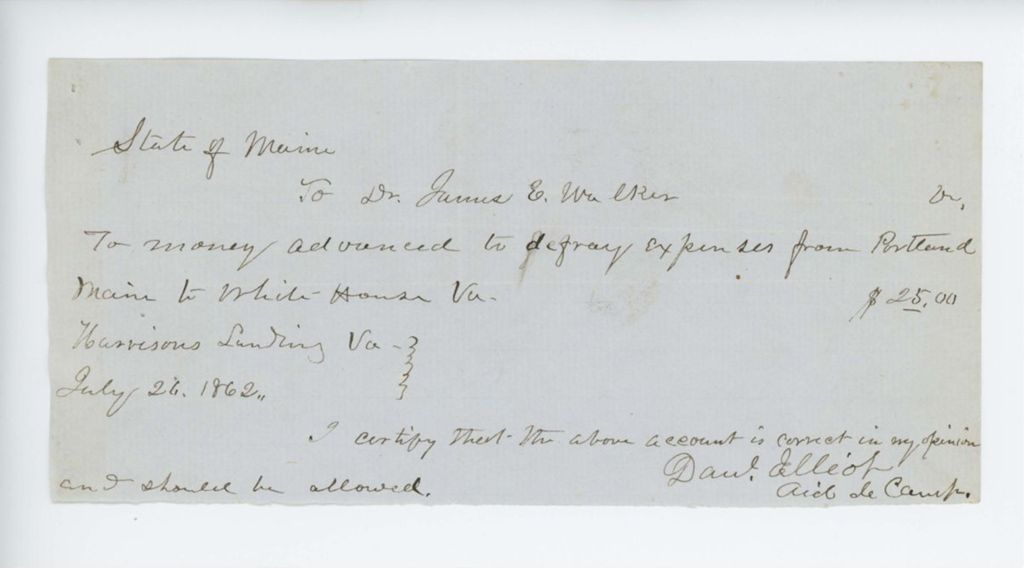 State of Maine
To Dr. James E. Walker Dr,
To money advanced to defray expenses from Portland
Maine to White House Va. $25.00
Harrisons Landing Va -
July 26. 1862,,
I certify that the above account is correct in my opinion
and should be allowed.
Danl. Elliot
Aid de Camp.